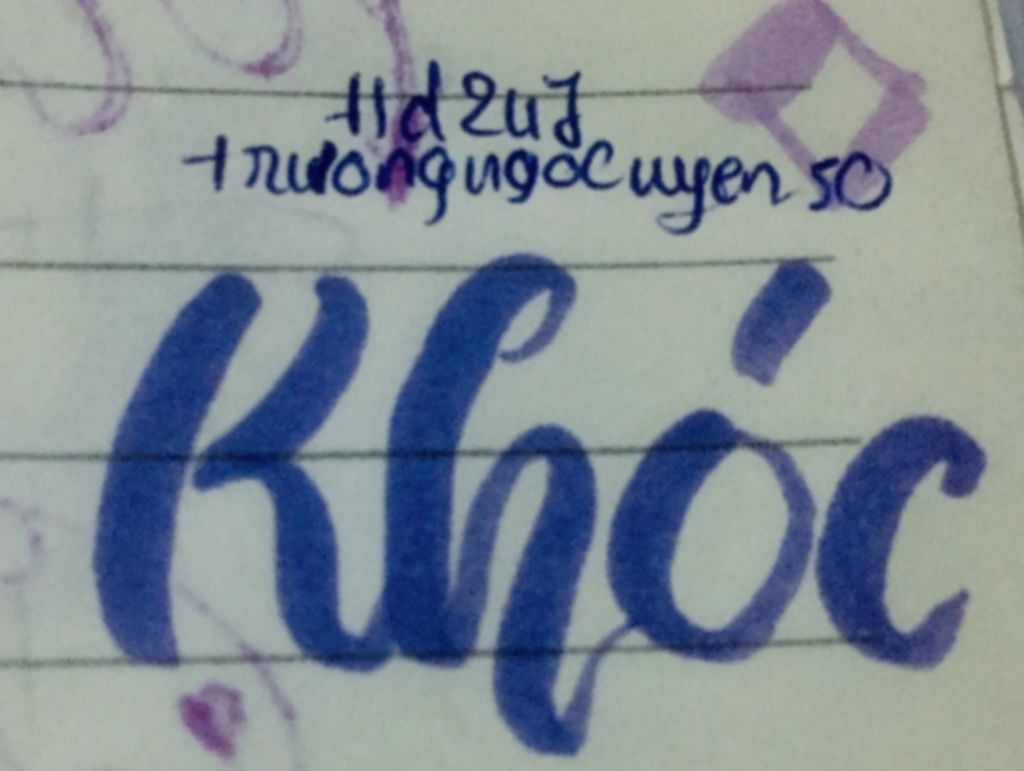 11d2u7
truongngocuyen50
Khóc